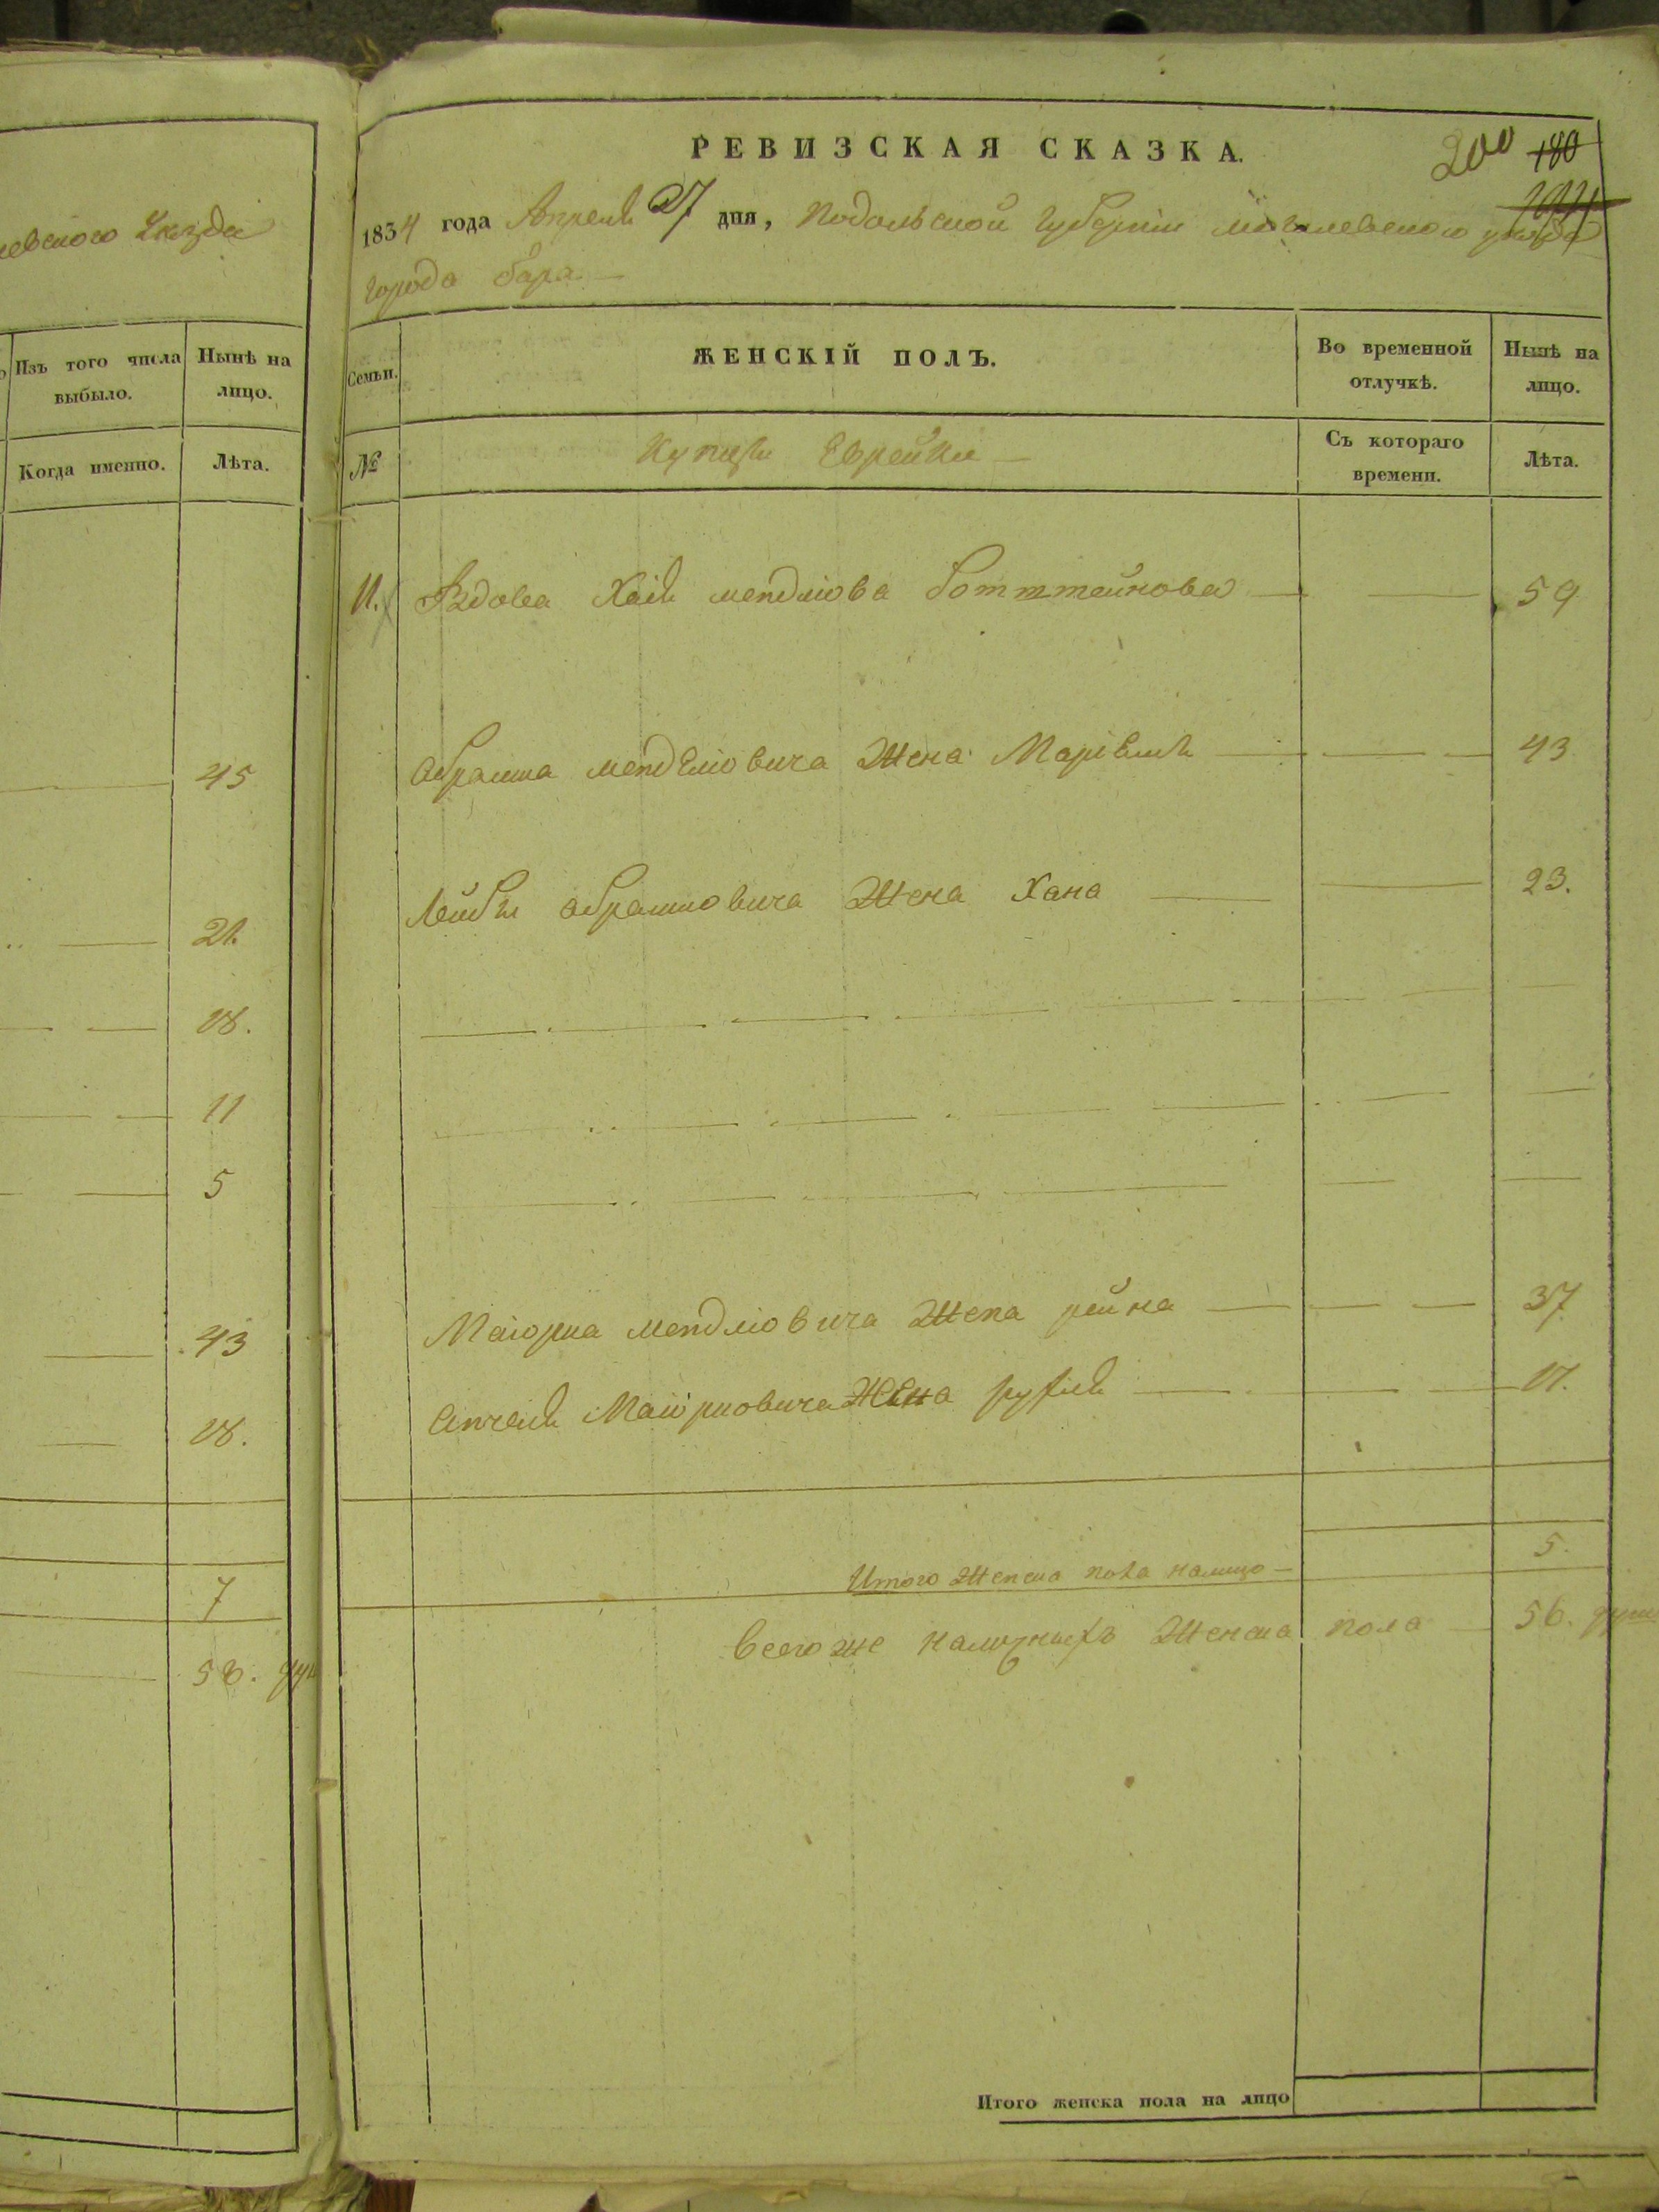 левского Уезда
Изъ того числа выбыло.
Нынѣ на лицо.
Когда именно.
Лѣта.
45
21.
18.
11
5
43
18.
7
58. душ
РЕВИЗСКАЯ СКАЗКА.
200 180
1834 года Апреля 27 дня, Подольской Губернiи могилевского уезда
города бара
Семьи.
ЖЕНСКІЙ ПОЛЪ.
Во временной отлучкѣ.
Нынѣ на лицо.
№
Купцы Еврейки
Съ котораго времени.
Лѣта.
11. Вдова Хая мендлiова Ротштейнова 59
абрамка мендлiовича Жена Марiемя 43
Лейбы абрамковича Жена Хана 23.
Маiорка мендлiовича Жена рейна 37
Анчеля Маiорковича Жена рухля 17.
Итого Женска пола налицо 5.
Всего же наличныхъ Женска пола 56. душ
Итого женска пола на лицо